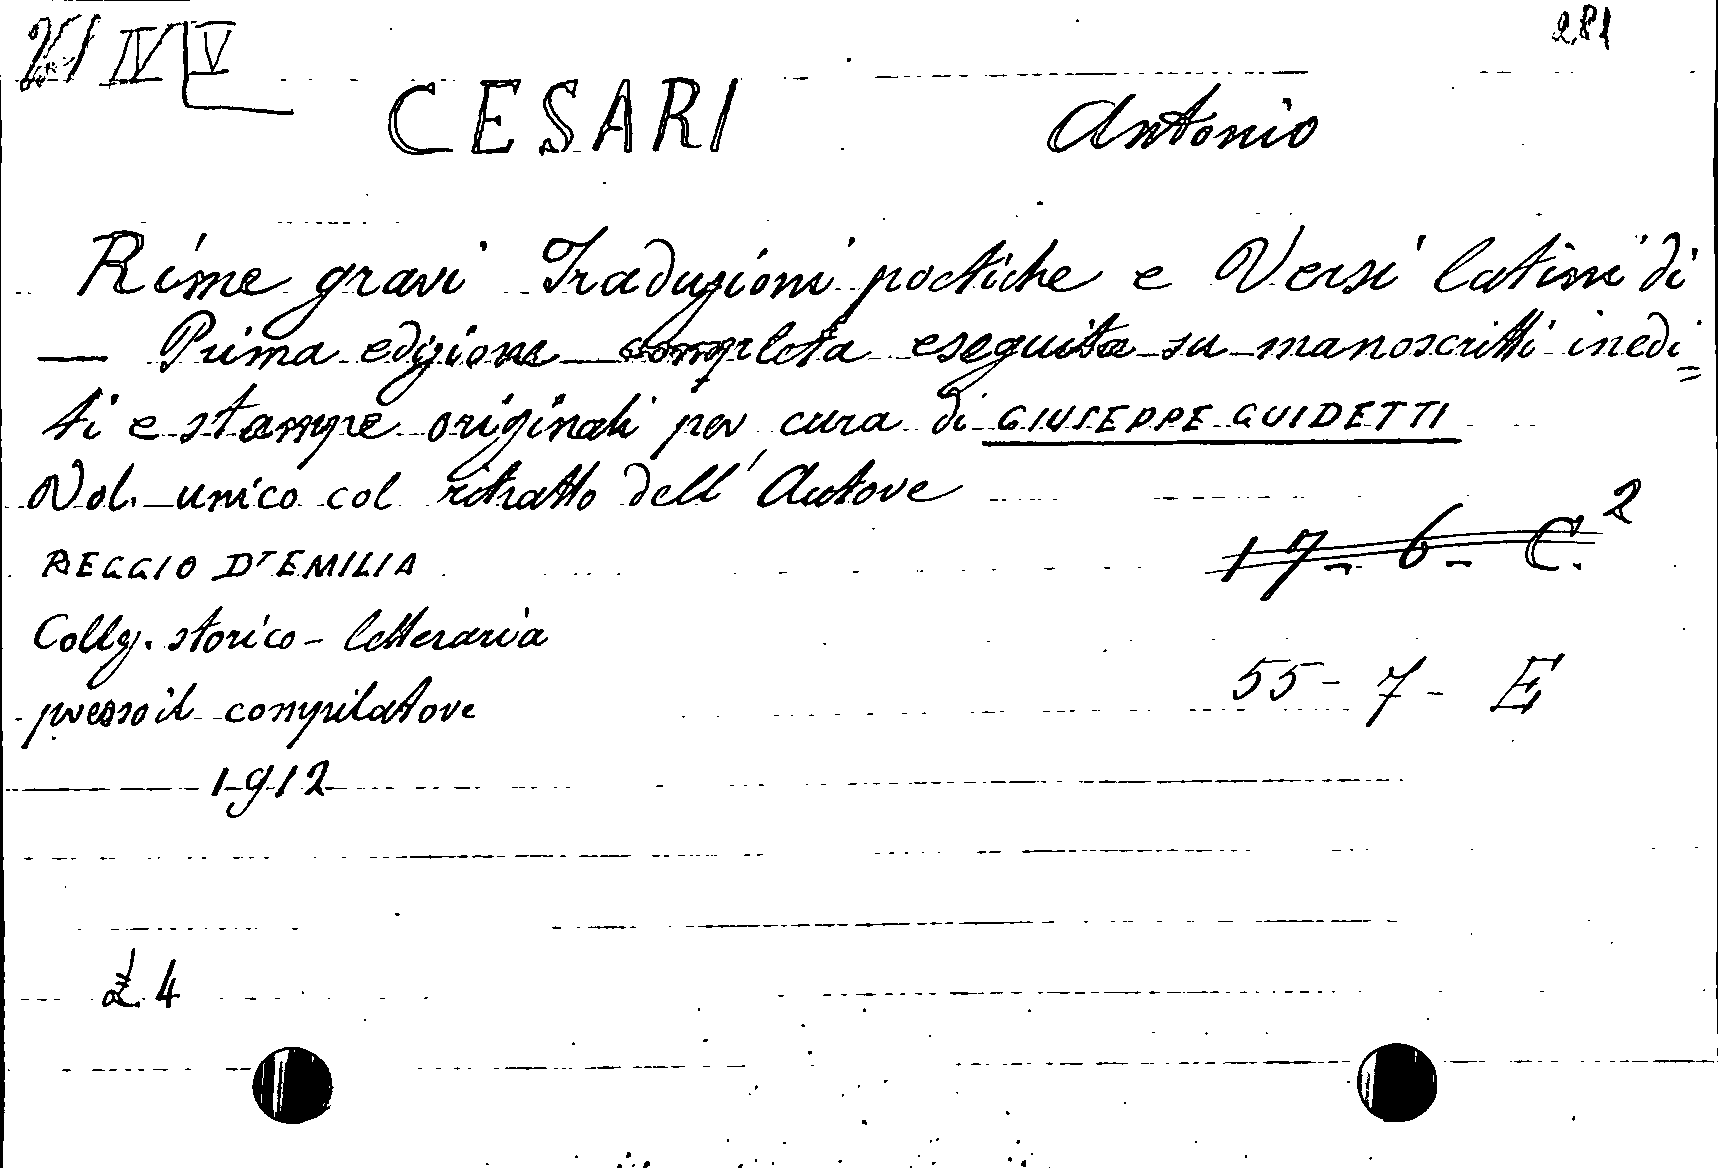 21 IV V
281
CESARI Antonio
Rime gravi Traduzioni poetiche e Versi latini di
— Prima edizione completa eseguita su manoscritti inedi=
ti e stampe originali per cura di GIUSEPPE GUIDETTI
Vol. unico col ritratto dell'Autore
17-6-C.2
REGGIO D'EMILIA
Collez. storico-letteraria
55-7-E
presso il compilatore
1912
£. 4